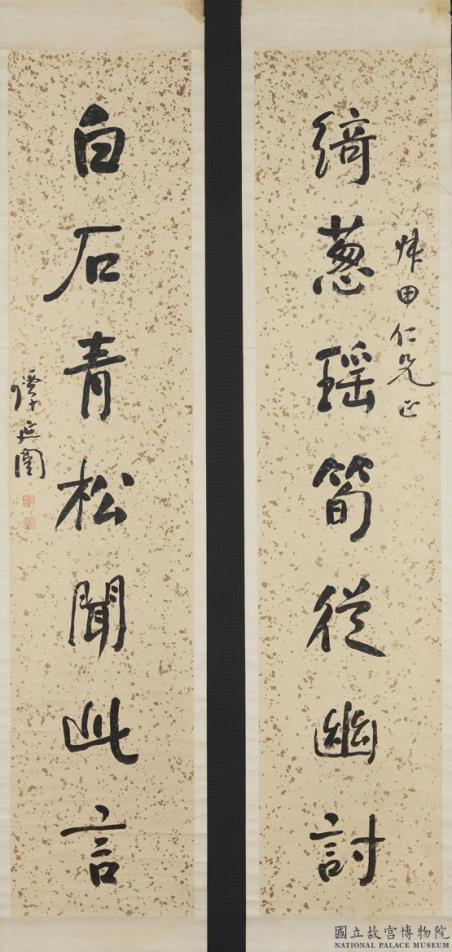 綺蔥瑤筍從幽討
田仁兄正
白石青松聞此言
譚延闓
國立故宮博物院
NATIONAL PALACE MUSEUM